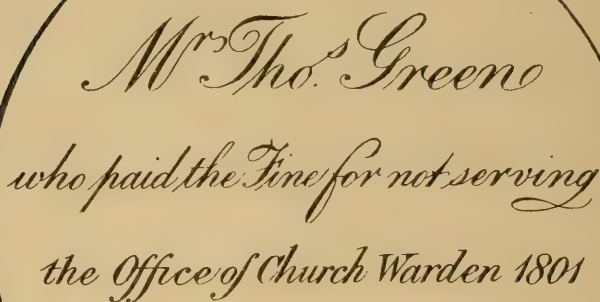 Mrs Thos. Green
who paid the Fine for not serving
the Office of Church Warden 1801